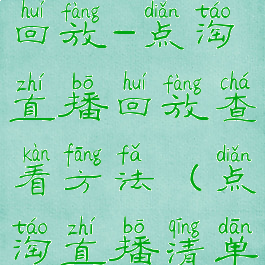 huí fàng diǎn táo
回放-点淘
zhí bō huí fàng chá
直播回放查
kàn fāng fǎ diǎn
看方法（点
táo zhí bō qīng dān
淘直播清单